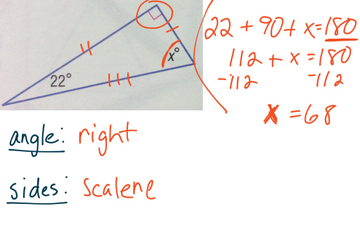 22 + 90 + x = 180
112 + x = 180
-112 -112
x = 68
22°
x°
angle: right
sides: scalene